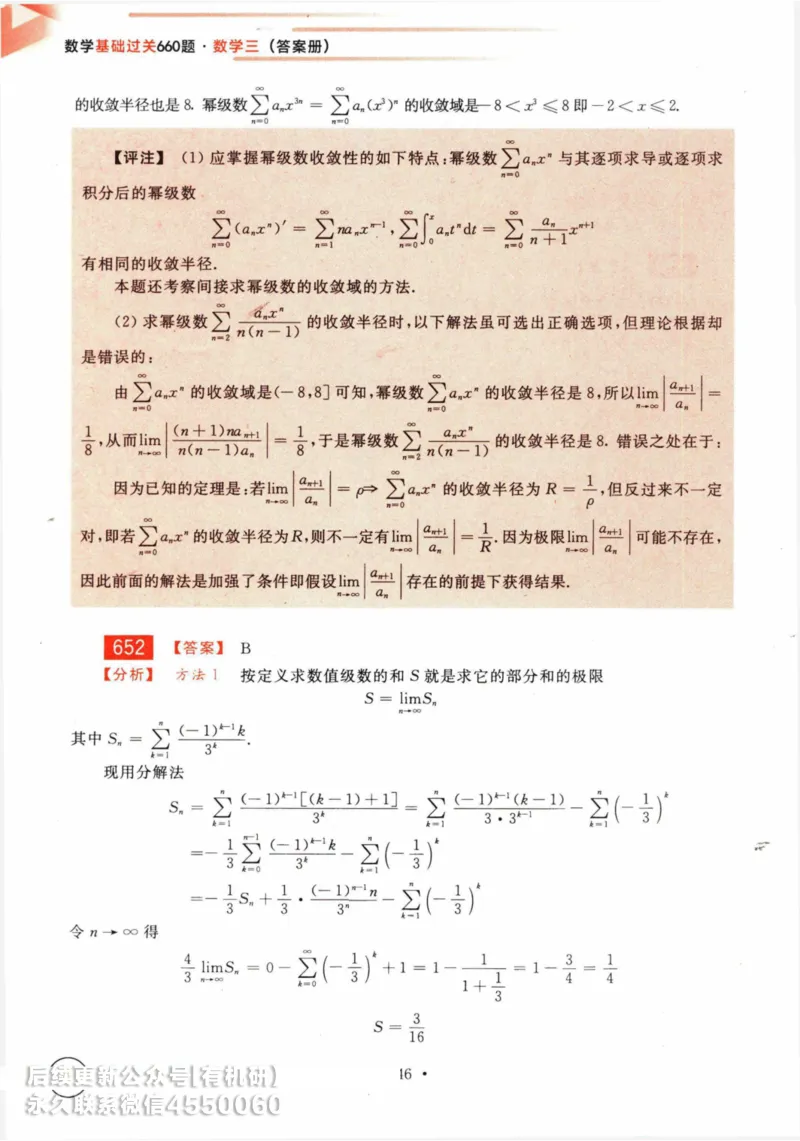 数学基础过关660题·数学三（答案册）
的收敛半径也是 8. 幂级数 $\sum_{n=0}^{\infty} a_n x^{3n} = \sum_{n=0}^{\infty} a_n (x^3)^n$ 的收敛域是 $-8 < x^3 \leqslant 8$ 即 $-2 < x \leqslant 2$.
【评注】 (1) 应掌握幂级数收敛性的如下特点:幂级数 $\sum_{n=0}^{\infty} a_n x^n$ 与其逐项求导或逐项求
积分后的幂级数
$\sum_{n=0}^{\infty} (a_n x^n)' = \sum_{n=1}^{\infty} n a_n x^{n-1}, \sum_{n=0}^{\infty} \int_0^x a_n t^n dt = \sum_{n=0}^{\infty} \frac{a_n}{n+1} x^{n+1}$
有相同的收敛半径.
本题还考察间接求幂级数的收敛域的方法.
(2) 求幂级数 $\sum_{n=2}^{\infty} \frac{a_n x^n}{n(n-1)}$ 的收敛半径时,以下解法虽可选出正确选项,但理论根据却
是错误的:
由 $\sum_{n=0}^{\infty} a_n x^n$ 的收敛域是(-8,8]可知,幂级数 $\sum_{n=0}^{\infty} a_n x^n$ 的收敛半径是 8,所以 $\lim_{n \to \infty} \left| \frac{a_{n+1}}{a_n} \right| =$
$\frac{1}{8}$,从而 $\lim_{n \to \infty} \left| \frac{(n+1)n a_{n+1}}{n(n-1)a_n} \right| = \frac{1}{8}$,于是幂级数 $\sum_{n=2}^{\infty} \frac{a_n x^n}{n(n-1)}$ 的收敛半径是 8. 错误之处在于:
因为已知的定理是:若 $\lim_{n \to \infty} \left| \frac{a_{n+1}}{a_n} \right| = \rho \Rightarrow \sum_{n=0}^{\infty} a_n x^n$ 的收敛半径为 $R = \frac{1}{\rho}$,但反过来不一定
对,即若 $\sum_{n=0}^{\infty} a_n x^n$ 的收敛半径为R,则不一定有 $\lim_{n \to \infty} \left| \frac{a_{n+1}}{a_n} \right| = \frac{1}{R}$.因为极限 $\lim_{n \to \infty} \left| \frac{a_{n+1}}{a_n} \right|$ 可能不存在,
因此前面的解法是加强了条件即假设 $\lim_{n \to \infty} \left| \frac{a_{n+1}}{a_n} \right|$ 存在的前提下获得结果.
652 【答案】 B
【分析】 方法 1 按定义求数值级数的和 S 就是求它的部分和的极限
$S = \lim_{n \to \infty} S_n$
其中 $S_n = \sum_{k=1}^{n} \frac{(-1)^{k-1} k}{3^k}$.
现用分解法
$S_n = \sum_{k=1}^{n} \frac{(-1)^{k-1}[(k-1)+1]}{3^k} = \sum_{k=1}^{n} \frac{(-1)^{k-1}(k-1)}{3 \cdot 3^{k-1}} - \sum_{k=1}^{n} \left(-\frac{1}{3}\right)^k$
$= -\frac{1}{3} \sum_{k=0}^{n-1} \frac{(-1)^{k-1} k}{3^k} - \sum_{k=1}^{n} \left(-\frac{1}{3}\right)^k$
$= -\frac{1}{3} S_n + \frac{1}{3} \cdot \frac{(-1)^{n-1} n}{3^n} - \sum_{k=1}^{n} \left(-\frac{1}{3}\right)^k$
令 $n \to \infty$ 得
$\frac{4}{3} \lim_{n \to \infty} S_n = 0 - \sum_{k=0}^{\infty} \left(-\frac{1}{3}\right)^k + 1 = 1 - \frac{1}{1+\frac{1}{3}} = 1 - \frac{3}{4} = \frac{1}{4}$
$S = \frac{3}{16}$
16 ·
后续更新公众号[有机研]
永久联系微信4550060